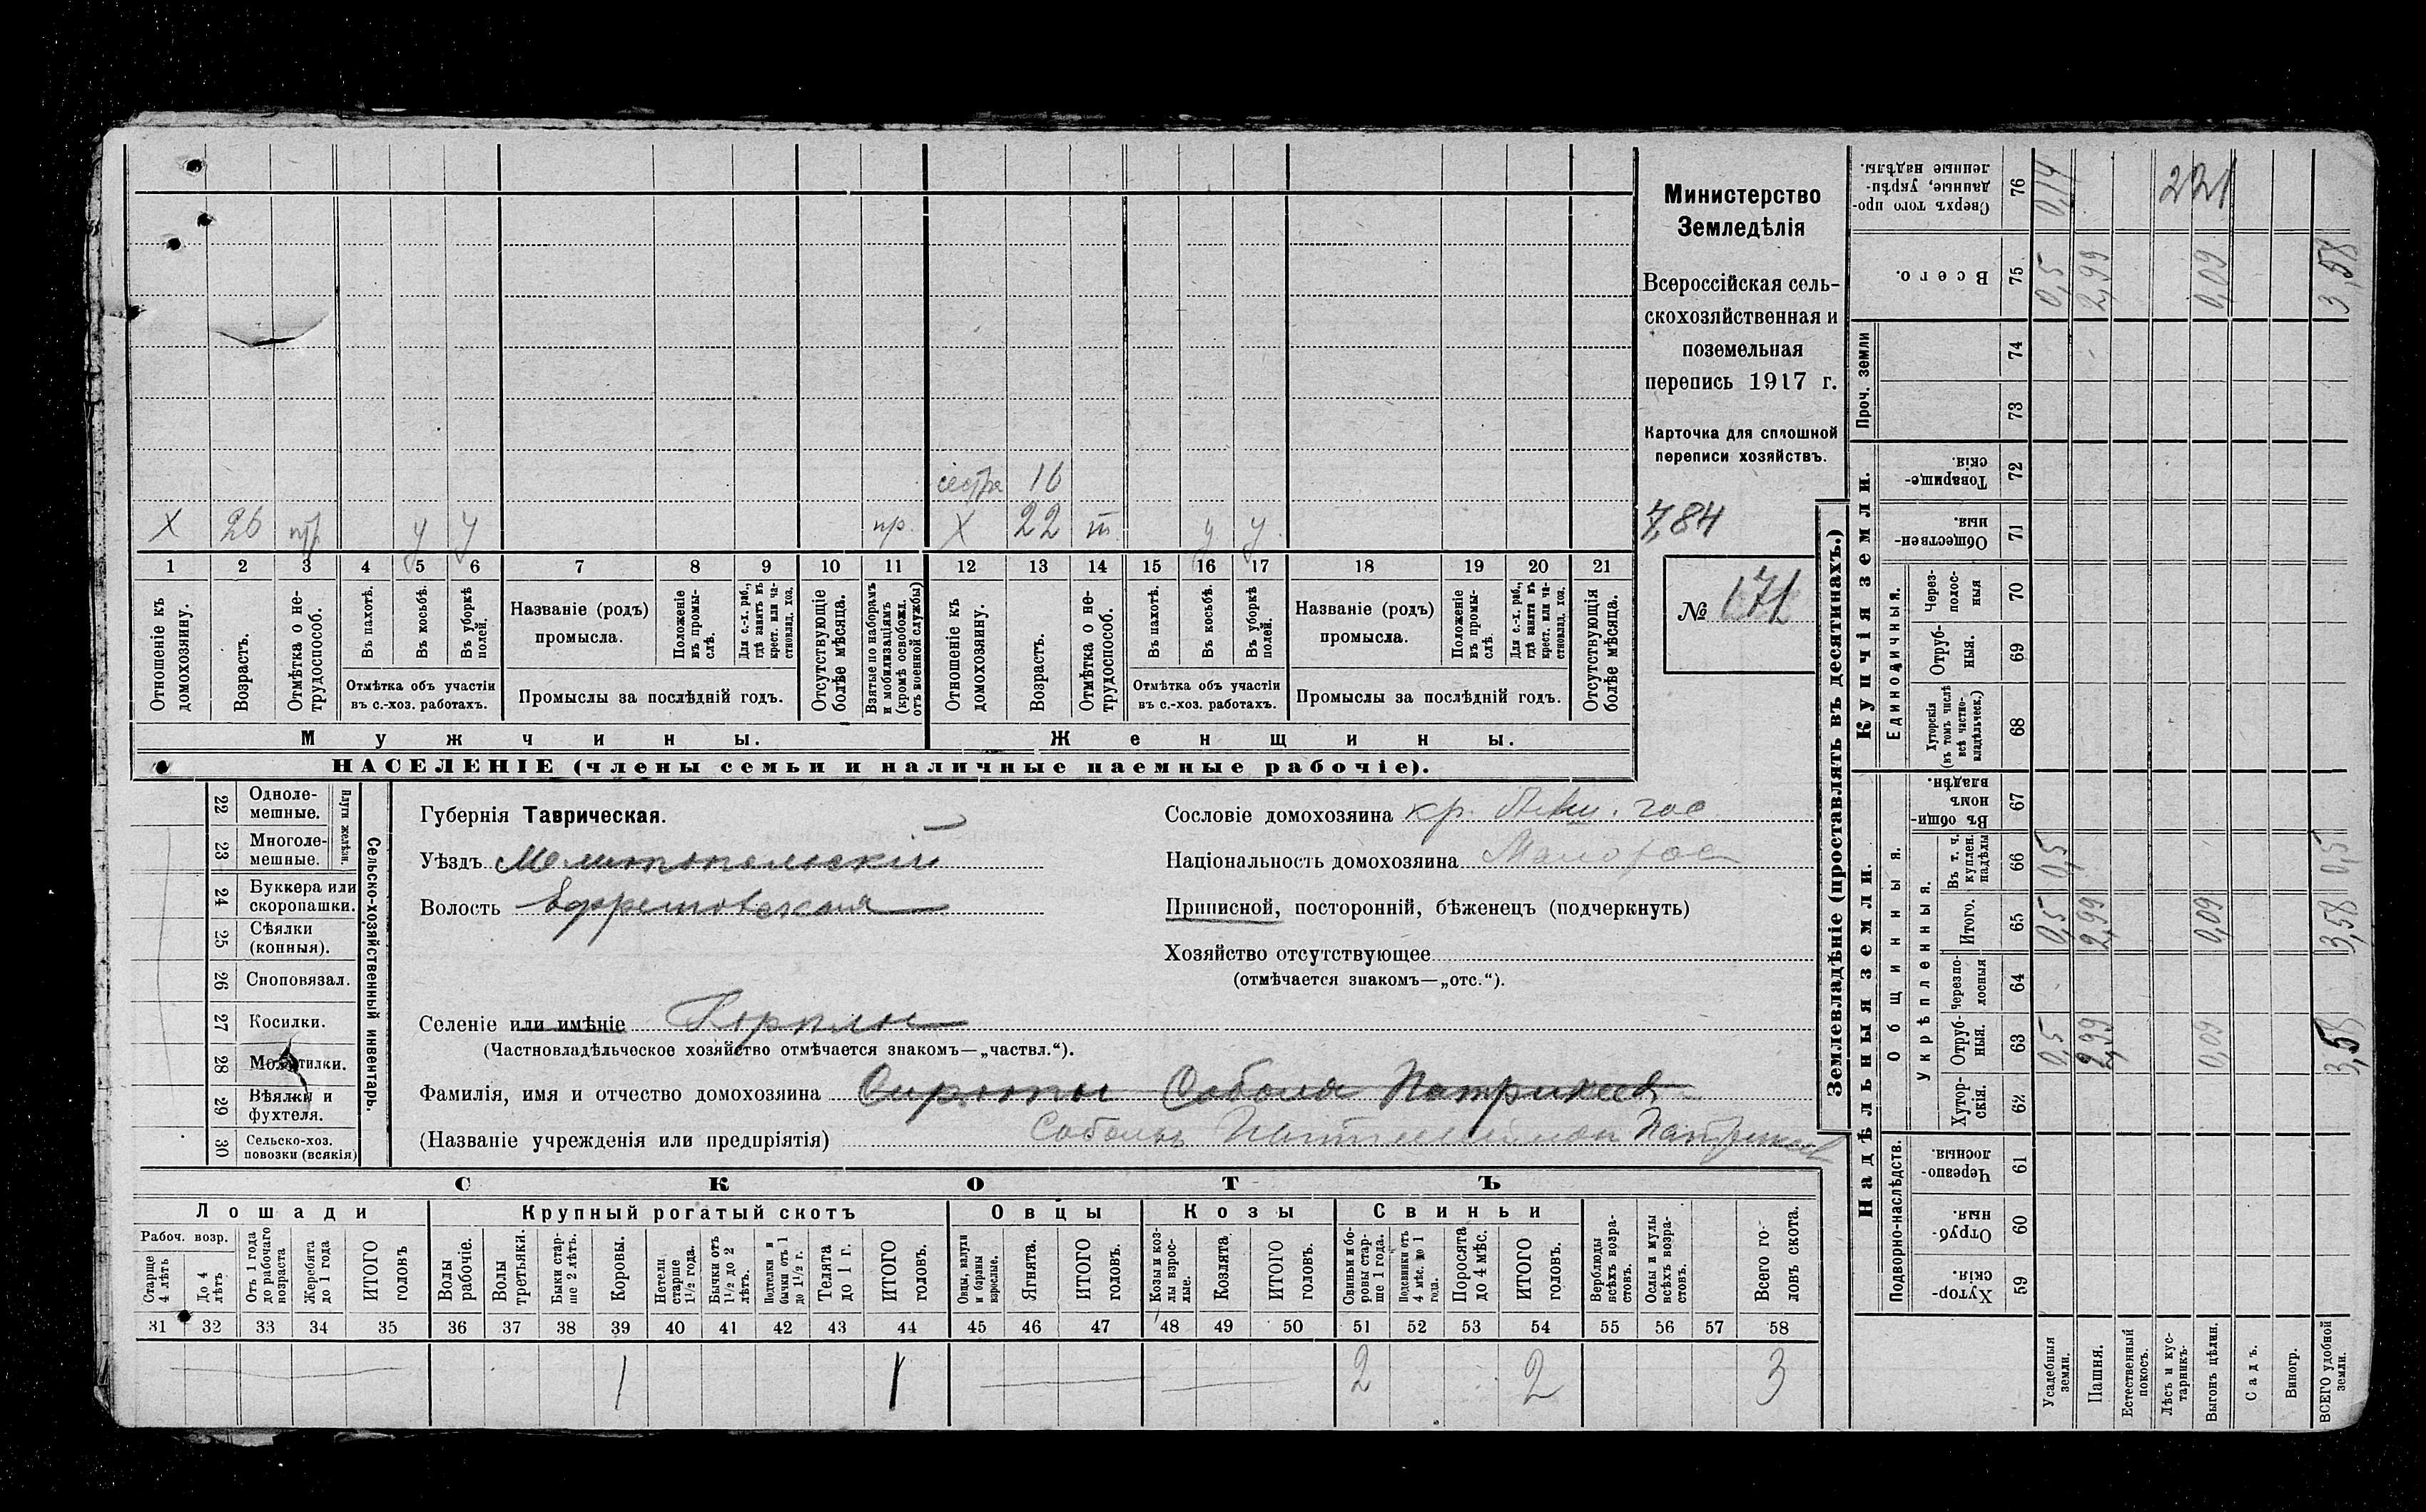 Министерство
Земледѣлія
Всероссійская сель-
скохозяйственная и
поземельная
перепись 1917 г.
Карточка для сплошной
переписи хозяйствъ.
7,84
№ 171
сестра 16
X 26 пр у у пр. X 22 т у у
1 2 3 4 5 6 7 8 9 10 11 12 13 14 15 16 17 18 19 20 21
Отношеніе къ домохозяину.
Возрастъ.
Отмѣтка о не-трудоспособ.
Въ пахотѣ.
Въ косьбѣ.
Въ уборкѣ полей.
Отмѣтка объ участіи
въ с.-хоз. работахъ.
Названіе (родъ)
промысла.
Положеніе въ промы-слѣ.
Для с.-х. раб., гдѣ занятъ въ крест. или ча-стновлад. хоз.
Промыслы за послѣдній годъ.
Отсутствующіе болѣе мѣсяца.
Взятые по наборамъ и мобилизаціямъ (кромѣ освобожд. отъ военной службы)
Отношеніе къ домохозяину.
Возрастъ.
Отмѣтка о не-трудоспособ.
Въ пахотѣ.
Въ косьбѣ.
Въ уборкѣ полей.
Отмѣтка объ участіи
въ с.-хоз. работахъ.
Названіе (родъ)
промысла.
Положеніе въ промы-слѣ.
Для с.-х. раб., гдѣ занята въ крест. или ча-стновлад. хоз.
Промыслы за послѣдній годъ.
Отсутствующія болѣе мѣсяца.
Мужчины. Женщины.
НАСЕЛЕНІЕ (члены семьи и наличные наемные рабочіе).
22 Одноле-мешные.
23 Многоле-мешные.
Плуги желѣзн.
24 Буккера или скоропашки.
25 Сѣялки (конныя).
26 Сноповязал.
27 Косилки.
28 Молотилки.
29 Вѣялки и фухтеля.
30 Сельско-хоз. повозки (всякія)
Сельско-хозяйственный инвентарь.
Губернія Таврическая.
Уѣздъ Мелитопольскій
Волость Ефремовская
Селеніе или имѣніе
(Частновладѣльческое хозяйство отмѣчается знакомъ—„частвл.“).
Фамилія, имя и отчество домохозяина Сироты Соболя Патрикея
(Названіе учрежденія или предпріятія) Соболь Патрикеев
Сословіе домохозяина кр.
Національность домохозяина Малорос
Приписной, посторонній, бѣженецъ (подчеркнуть)
Хозяйство отсутствующее
(отмѣчается знакомъ—„отс.“).
СКОТЪ
Лошади Крупный рогатый скотъ Овцы Козы Свиньи
Рабоч. возр.
Старше 4 лѣтъ
До 4 лѣтъ
Отъ 1 года до рабочаго возраста
Жеребята до 1 года
ИТОГО головъ
Волы рабочіе.
Волы третьяки.
Быки стар-ше 2 лѣтъ.
Коровы.
Нетели старше 1½ года.
Бычки отъ 1½ до 2 лѣтъ.
Подтелки и бычки отъ 1 до 1½ г.
Телята до 1 г.
ИТОГО головъ.
Овцы, валухи и бараны взрослые.
Ягнята.
ИТОГО головъ.
Козы и коз-лы взрос-лые.
Козлята
ИТОГО головъ.
Свиньи и бо-ровы стар-ше 1 года.
Подсвинки отъ 4 мѣс. до 1 года.
Поросята до 4 мѣс.
ИТОГО головъ.
Верблюды всѣхъ возра-стовъ.
Ослы и мулы всѣхъ возра-стовъ.
Всего го-ловъ скота.
31 32 33 34 35 36 37 38 39 40 41 42 43 44 45 46 47 48 49 50 51 52 53 54 55 56 57 58
1 1 2 2 3
Землевладѣніе (проставлять въ десятинахъ.)
Купчія земли.
Надѣльныя земли.
Сверхъ того про-данные, укрѣп-ленные надѣлы. 76 0,14 221
Всего. 75 0,5 2,99 0,09 3,58
Проч. земли
74
73
Товарище-скія. 72
Обществен-ныя. 71
Единоличныя.
Через-полос-ныя 70
Отруб-ныя. 69
Хуторскія (въ томъ числѣ всѣ частно-владѣльческ.) 68
Общинныя.
Въ общи-номъ владѣн. 67
Укрѣпленныя.
Въ т. ч. куплен. надѣлы 66 0,5 0,5
Итого. 65 0,5 2,99 0,09 3,58
Черезпо-лосныя 64
Отруб-ныя. 63 0,5 2,99 0,09 3,58
Хутор-скія. 62
Подворно-наслѣдств.
Черезпо-лосныя. 61
Отруб-ныя. 60
Хутор-скія. 59
Усадебныя земли.
Пашня.
Естественный покосъ.
Лѣсъ и кус-тарникъ.
Выгонъ цѣлин.
Садъ.
Виногр.
ВСЕГО удобной земли.